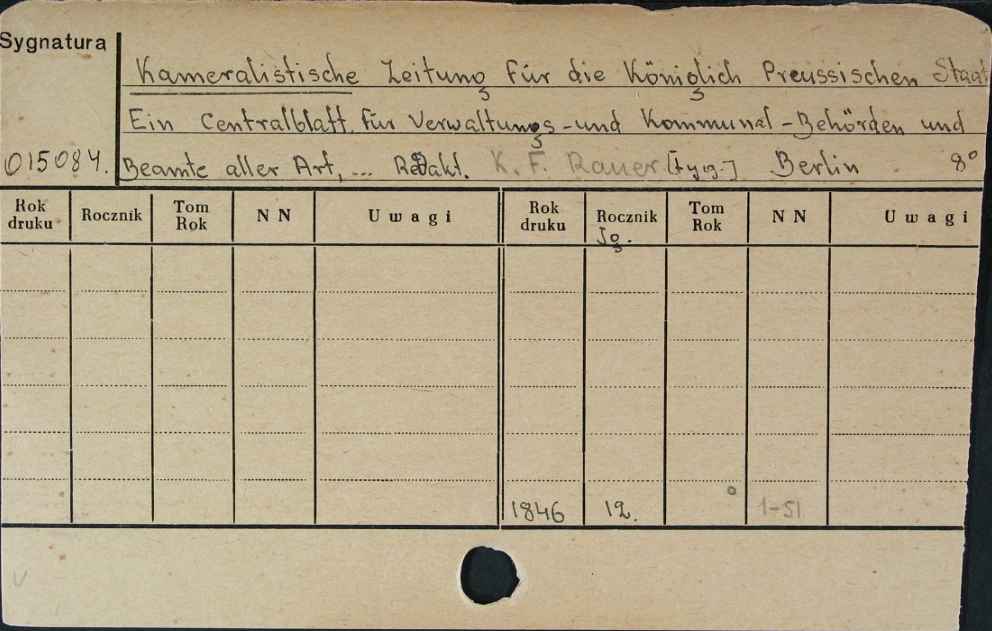 Sygnatura
Kameralistische Zeitung für die Königlich Preussischen Staat
Ein Centralblatt für Verwaltungs-und Kommunal-Behörden und
015084. Beamte aller Art, ... Redakt. K. F. Rauer [tyg.] Berlin 8°
Rok druku Rocznik Tom Rok NN Uwagi Rok druku Rocznik Tom Rok NN Uwagi
Jg.
1846 12. 1-51